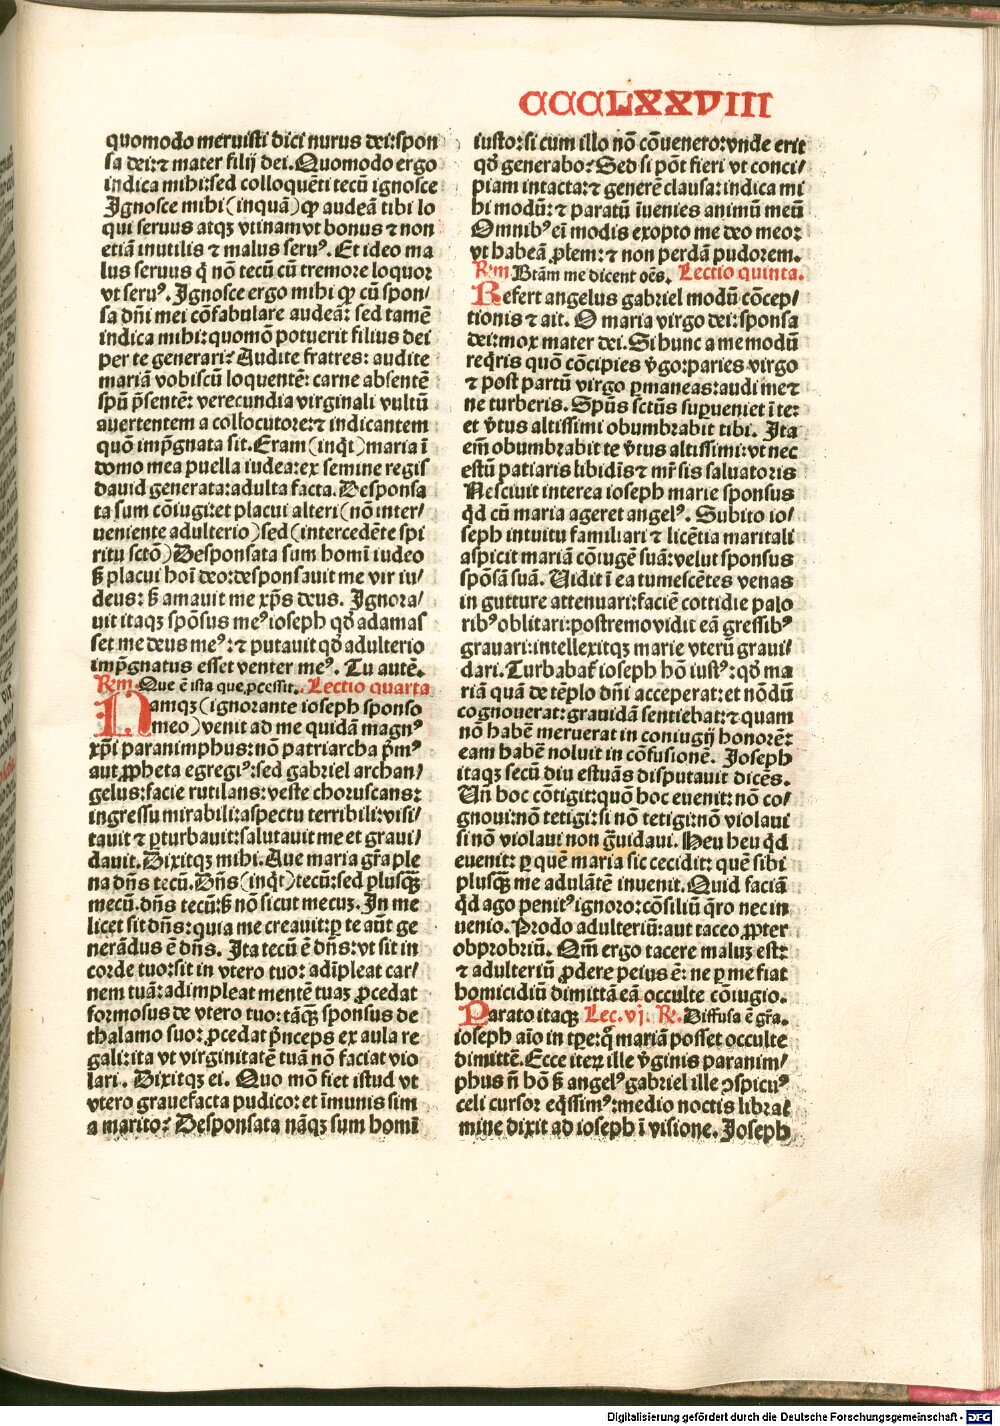 CCCLXXVIII
quomodo meruisti dici nurus dei:spon
sa dei:⁊ mater filij dei.Quomodo ergo
indica mihi:sed colloquẽti tecũ ignosce
Ignosce mihi(inquã)ꝙ audeã tibi lo
qui seruus atqꝫ vtinam vt bonus ⁊ non
etiã inutilis ⁊ malus seruꝰ. Et ideo ma
lus seruus q̃ nõ tecũ cũ tremore loquor
vt seruꝰ. Ignosce ergo mihi ꝙ cũ spon/
sa dñi mei cõfabulare audeã: sed tamẽ
indica mihi:quomõ potuerit filius dei
per te generari? Audite fratres: audite
mariã vobiscũ loquentẽ: carne absentẽ
spũ p̃sentẽ: verecundia virginali vultũ
auertentem a collocutore:⁊ indicantem
quõ imp̃gnata sit.Eram(inq̃t)maria ĩ
domo mea puella iudea:ex semine regis
dauid generata:adulta facta.Desponsa
ta sum cõiugi:et placui alteri(nõ inter/
ueniente adulterio)sed(intercedẽte spi
ritu sctõ)Desponsata sum homĩ iudeo
ꝭ placui hoĩ deo:desponsauit me vir iu/
deus: ꝭ amauit me xp̃s deus. Ignora/
uit itaqꝫ spõsus meꝰ ioseph qð adamas
set me deus meꝰ:⁊ putauit qð adulterio
imp̃gnatus esset venter meꝰ. Tu autẽ.
Rm. Que ẽ ista que ꝓcessit. Lectio quarta
Namqꝫ(ignorante ioseph sponso
meo)venit ad me quidã magnꝰ
xp̃i paranimphus:nõ patriarcha p̃mꝰ
aut ꝓpheta egregiꝰ:sed gabriel archan/
gelus:facie rutilans:veste choruscans:
ingressu mirabili:aspectu terribili:visi/
tauit ⁊ ꝑturbauit:salutauit me et graui/
dauit.Dixitqꝫ mihi.Aue maria gr̃a ple
na dñs tecũ.Dñs(inq̃t)tecũ:sed plusqꝫ̃
mecũ.dñs tecũ:ꝭ nõ sicut mecuꝫ. In me
licet sit dñs:quia me creauit:ꝑ te aũt ge
nerãdus ẽ dñs. Ita tecũ ẽ dñs:vt sit in
corde tuo:sit in vtero tuo: adĩpleat car/
nem tuã:adimpleat mentẽ tuaꝫ ꝓcedat
formosus de vtero tuo:tãqꝫ̃ sponsus de
thalamo suo:ꝓcedat p̃nceps ex aula re
gali:ita vt virginitatẽ tuã nõ faciat vio
lari. Dixitqꝫ ei. Quo mõ fiet istud vt
vtero grauefacta pudico:et ĩmunis sim
a marito? Desponsata nãqꝫ sum homĩ
iusto:si cum illo nõ cõuenero:vnde erit
qð generabo? Sed si põt fieri vt conci/
piam intacta:⁊ generẽ clausa:indica mi
hi modũ:⁊ paratũ ĩuenies animũ meũ
Omnibꝰ eñ modis exopto me deo meo:
vt habeã ꝓlem:⁊ non perdã pudorem.
Rm.Btãm me dicent oẽs. Lectio quinta.
Refert angelus gabriel modũ cõcep/
tionis ⁊ ait. O maria virgo dei:sponsa
dei:mox mater dei.Si hunc a me modũ
req̃ris quõ cõcipies v̾go:paries virgo
⁊ post partũ virgo ꝑmaneas:audi me⁊
ne turberis.Spũs sctũs suꝑueniet ĩ te:
et v̾tus altissimi obumbrabit tibi. Ita
em̃ obumbrabit te v̾tus altissimi:vt nec
estũ patiaris libidĩs⁊ mr̃ sis saluatoris
Nesciuit interea ioseph marie sponsus
qd̃ cũ maria ageret angelꝰ. Subito io/
seph intuitu familiari ⁊ licẽtia maritali
aspicit mariã cõiugẽ suã:velut sponsus
spõsã suã. Uidit ĩ ea tumescẽtes venas
in gutture attenuari:faciẽ cottidie palo
ribꝰ oblitari:postremo vidit eã gressibꝰ
grauari:intellexitqꝫ marie vterũ graui/
dari.Turbabat̃ ioseph hõ iustꝰ:qð ma
riã quã de tẽplo dñi acceperat:et nõdũ
cognouerat:grauidã sentiebat:⁊ quam
nõ habẽ meruerat in coniugij honorẽ:
eam habẽ noluit in cõfusionẽ. Joseph
itaqꝫ secũ diu estuãs disputauit dicẽs.
Uñ hoc cõtigit:quõ hoc euenit: nõ co/
gnoui:nõ tetigi:si nõ tetigi:nõ violaui
si nõ violaui non g̃uidaui. Heu heu qd̃
euenit: ꝑ quẽ maria sic cecidit: quẽ sibi
plusqꝫ̃ me adulãtẽ inuenit.Quid faciã
qd̃ ago penitꝰ ignoro:cõsiliũ q̃ro nec in
uenio. Prodo adulteriũ:aut taceo ꝓpter
obprobriũ. Qm̃ ergo tacere maluꝫ est:
⁊ adulteriũ ꝓdere peius ẽ: ne ꝑ me fiat
homicidiũ dimittã eã occulte cõiugio.
Parato itaqꝫ Lec.vj. R. Diffusa ẽ gr̃a.
ioseph aĩo in tꝑe:q̃ mariã posset occulte
dimittẽ.Ecce iterꝫ ille v̾ginis paranim/
phus ñ hõ ꝭ angelꝰ gabriel ille ꝯspicuꝰ
celi cursor eq̃ssimꝰ:medio noctis libra/
mine dixit ad ioseph ĩ visione. Joseph
Digitalisierung gefördert durch die Deutsche Forschungsgemeinschaft - DFG